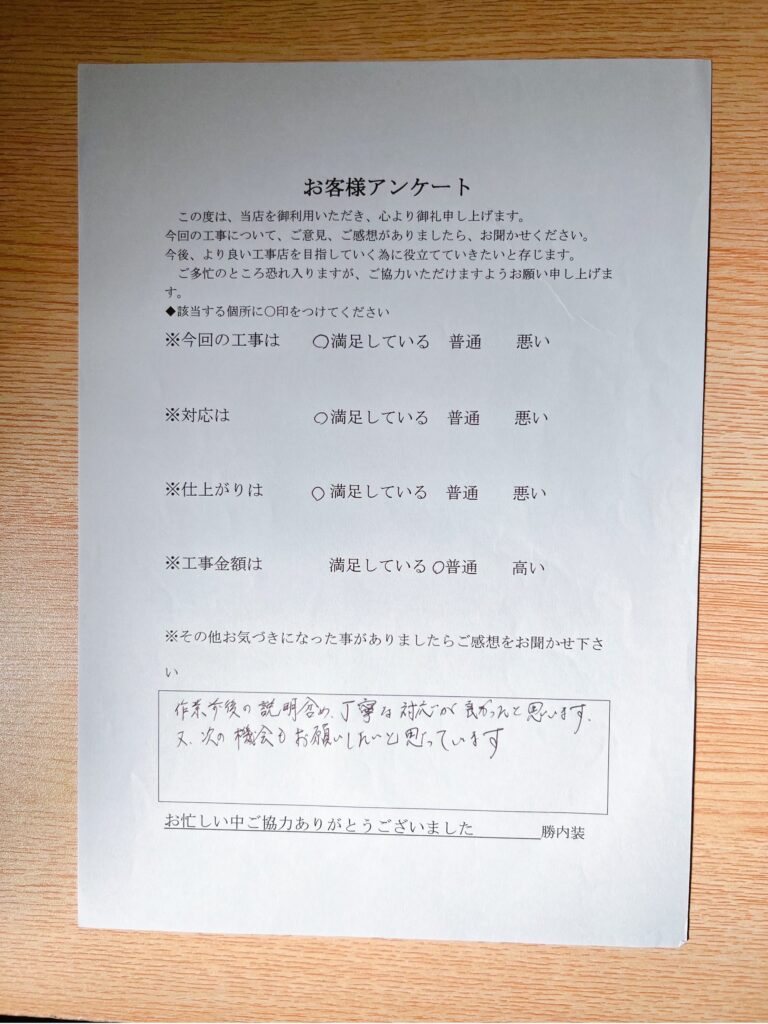 お客様アンケート
この度は、当店を御利用いただき、心より御礼申し上げます。
今回の工事について、ご意見、ご感想がありましたら、お聞かせください。
今後、より良い工事店を目指していく為に役立てていきたいと存じます。
ご多忙のところ恐れ入りますが、ご協力いただけますようお願い申し上げま
す。
◆該当する個所に〇印をつけてください
※今回の工事は ○満足している 普通 悪い
※対応は ○満足している 普通 悪い
※仕上がりは ○満足している 普通 悪い
※工事金額は 満足している ○普通 高い
※その他お気づきになった事がありましたらご感想をお聞かせ下さ
い
作業後の説明含め、丁寧な対応が良かったと思います。
又、次の機会もお願いしたいと思っています
お忙しい中ご協力ありがとうございました 勝内装